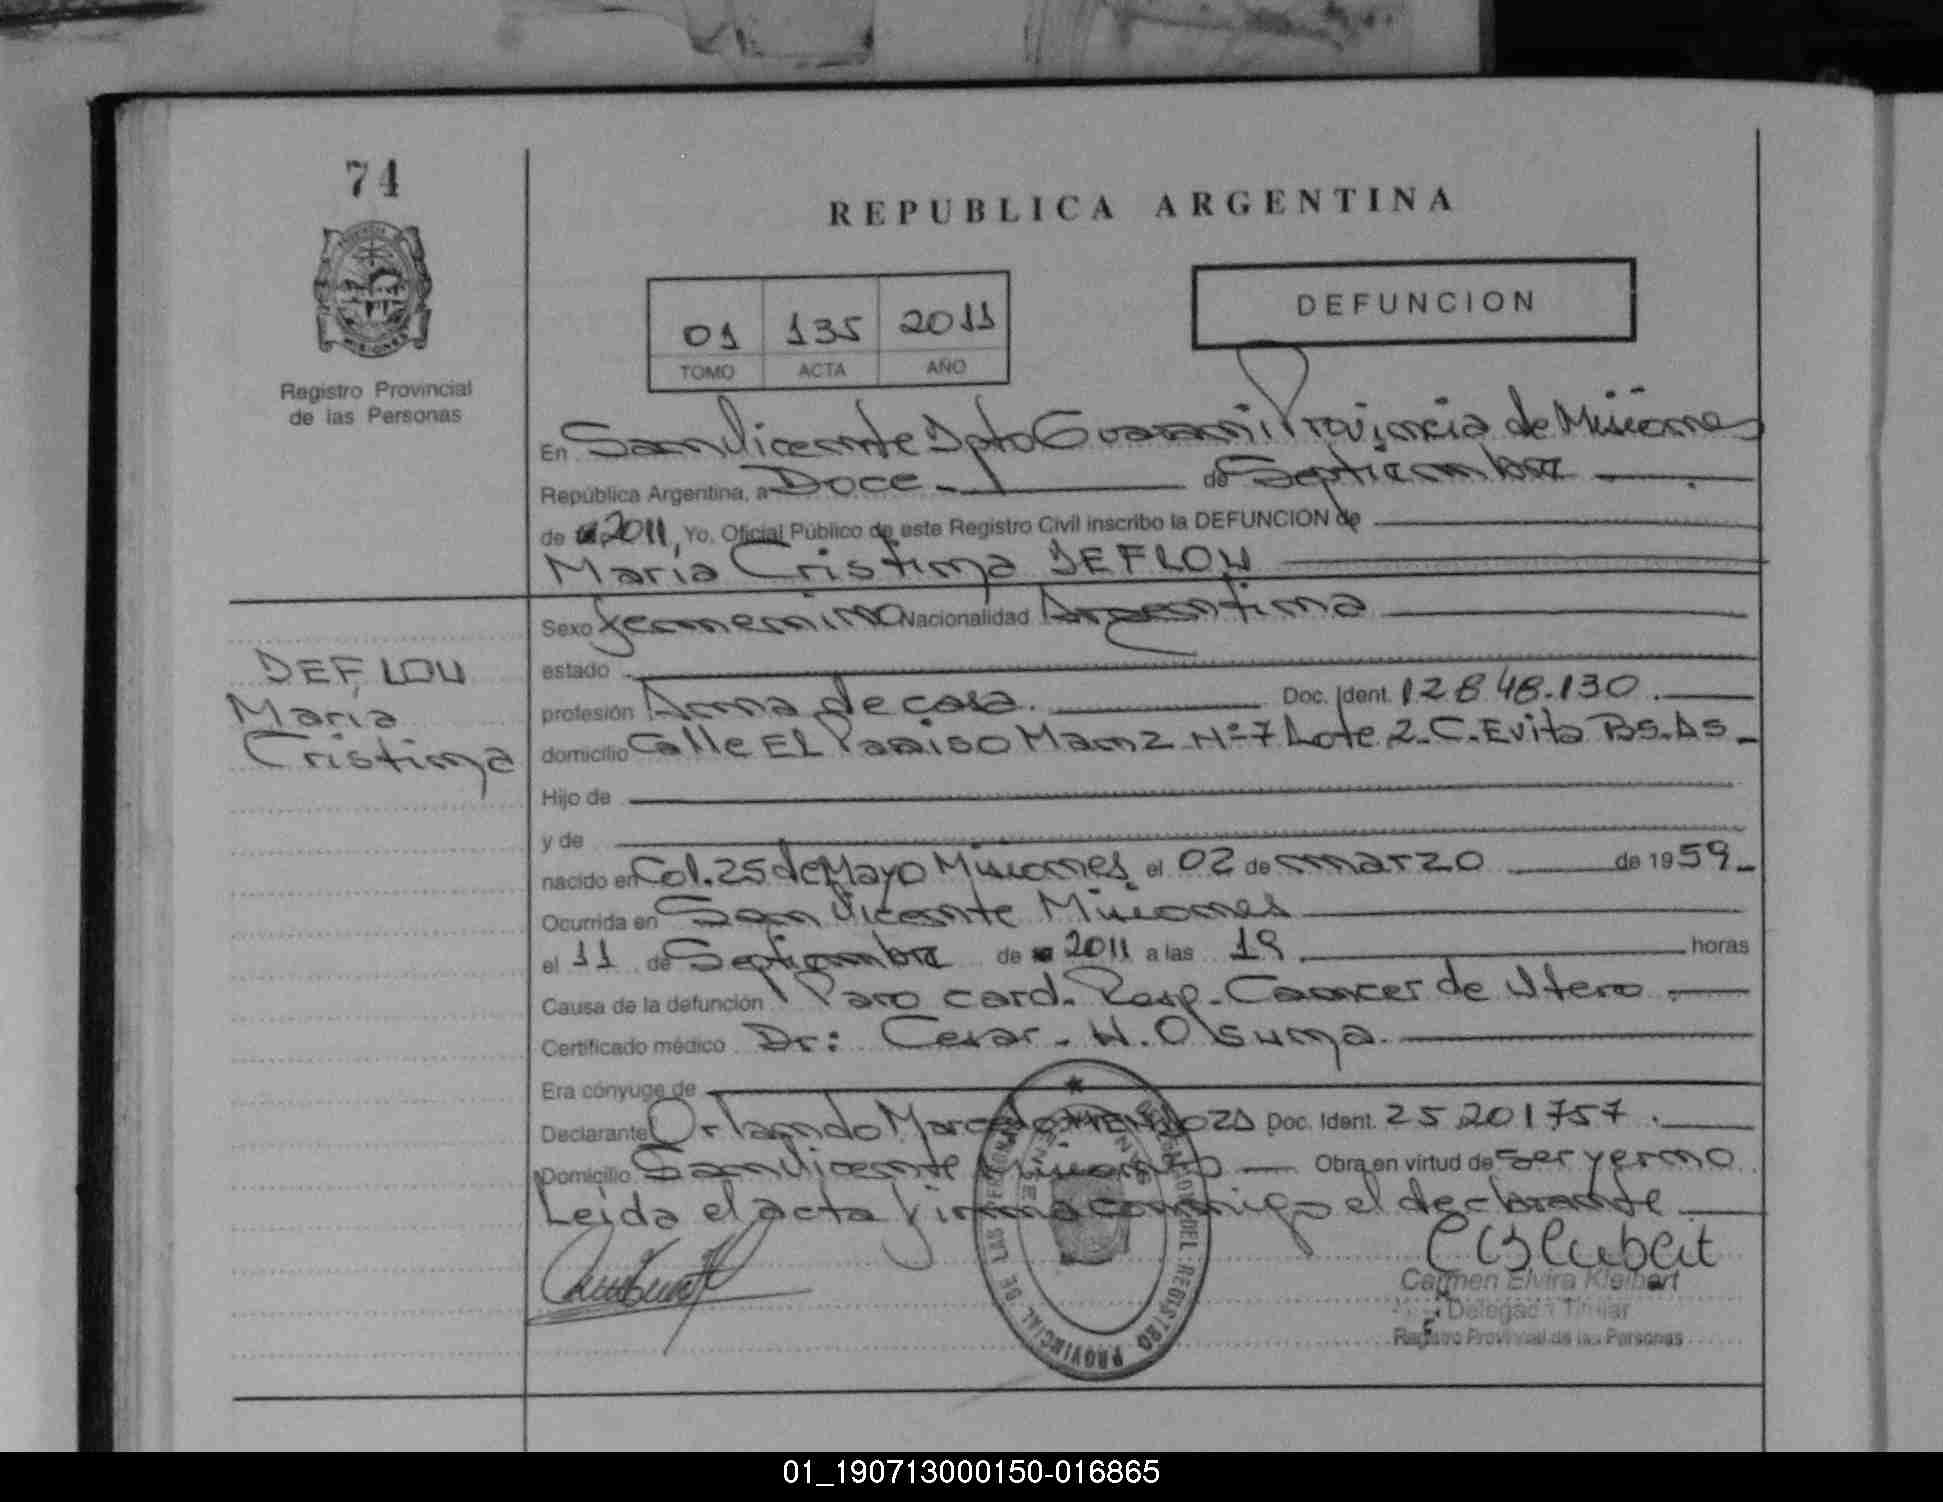 74
Registro Provincial
de las Personas
REPUBLICA ARGENTINA
01 135 2011
TOMO ACTA AÑO
DEFUNCION
En San Vicente Dpto Guarani Provincia de Misiones
República Argentina, a Doce de Septiembre
de 2011, Yo, Oficial Público de este Registro Civil inscribo la DEFUNCION de
Maria Cristina DEFLOU
Sexo femenino Nacionalidad Argentina
estado
profesión Ama de casa. Doc. Ident. 12848.130.
domicilio Calle El Paraiso Manz Nº7 Lote 2. C. Evita Bs.As
Hijo de
y de
nacido en Col. 25 de Mayo Misiones el 02 de marzo de 1959
Ocurrida en San Vicente Misiones
el 11 de Septiembre de 2011 a las 19 horas
Causa de la defunción Paro card. Resp. Cancer de Utero.
Certificado médico Dr: Cesar. H. Osuna.
Era cónyuge de
Declarante Orlando Marcelo Doc. Ident. 25201757.
Domicilio San Vicente Misiones Obra en virtud de ser yerno
Leida el acta firma conmigo el declarante
DEFLOU
Maria
Cristina
PROVINCIAL DE LAS PERSONAS
DEL REGISTRO
Carmen Elvira Kleibert
Delegada Titular
Registro Provincial de las Personas
01_190713000150-016865